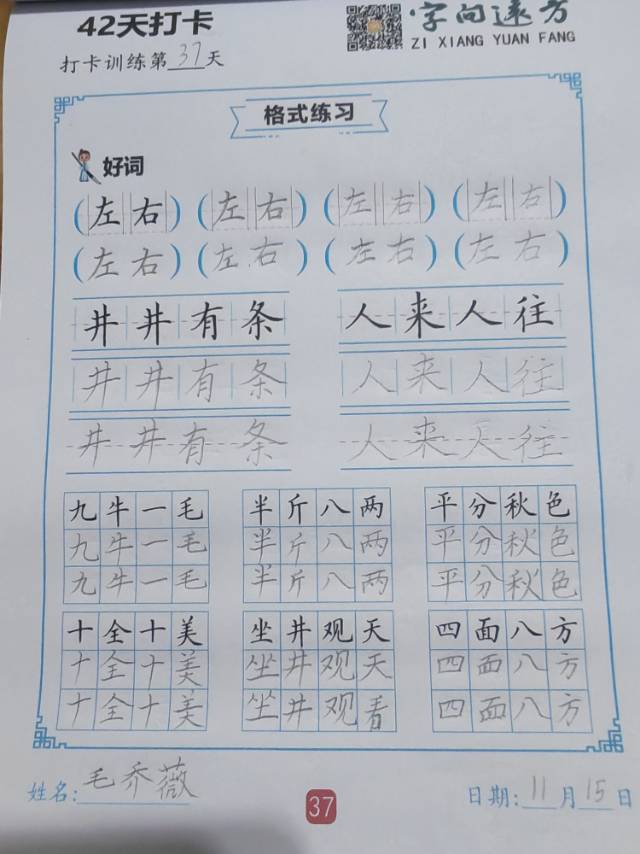 42天打卡
字向远方
ZI XIANG YUAN FANG
打卡训练第37天
格式练习
好词
(左右) (左右) (左右) (左右)
(左右) (左右) (左右) (左右)
井井有条 人来人往
井井有条 人来人往
井井有条 人来天往
九牛一毛 半斤八两 平分秋色
九牛一毛 半斤八两 平分秋色
九牛一毛 半斤八两 平分秋色
十全十美 坐井观天 四面八方
十全十美 坐井观天 四面八方
十全十美 坐井观看 四面八方
姓名:毛乔薇
37
日期:11月15日